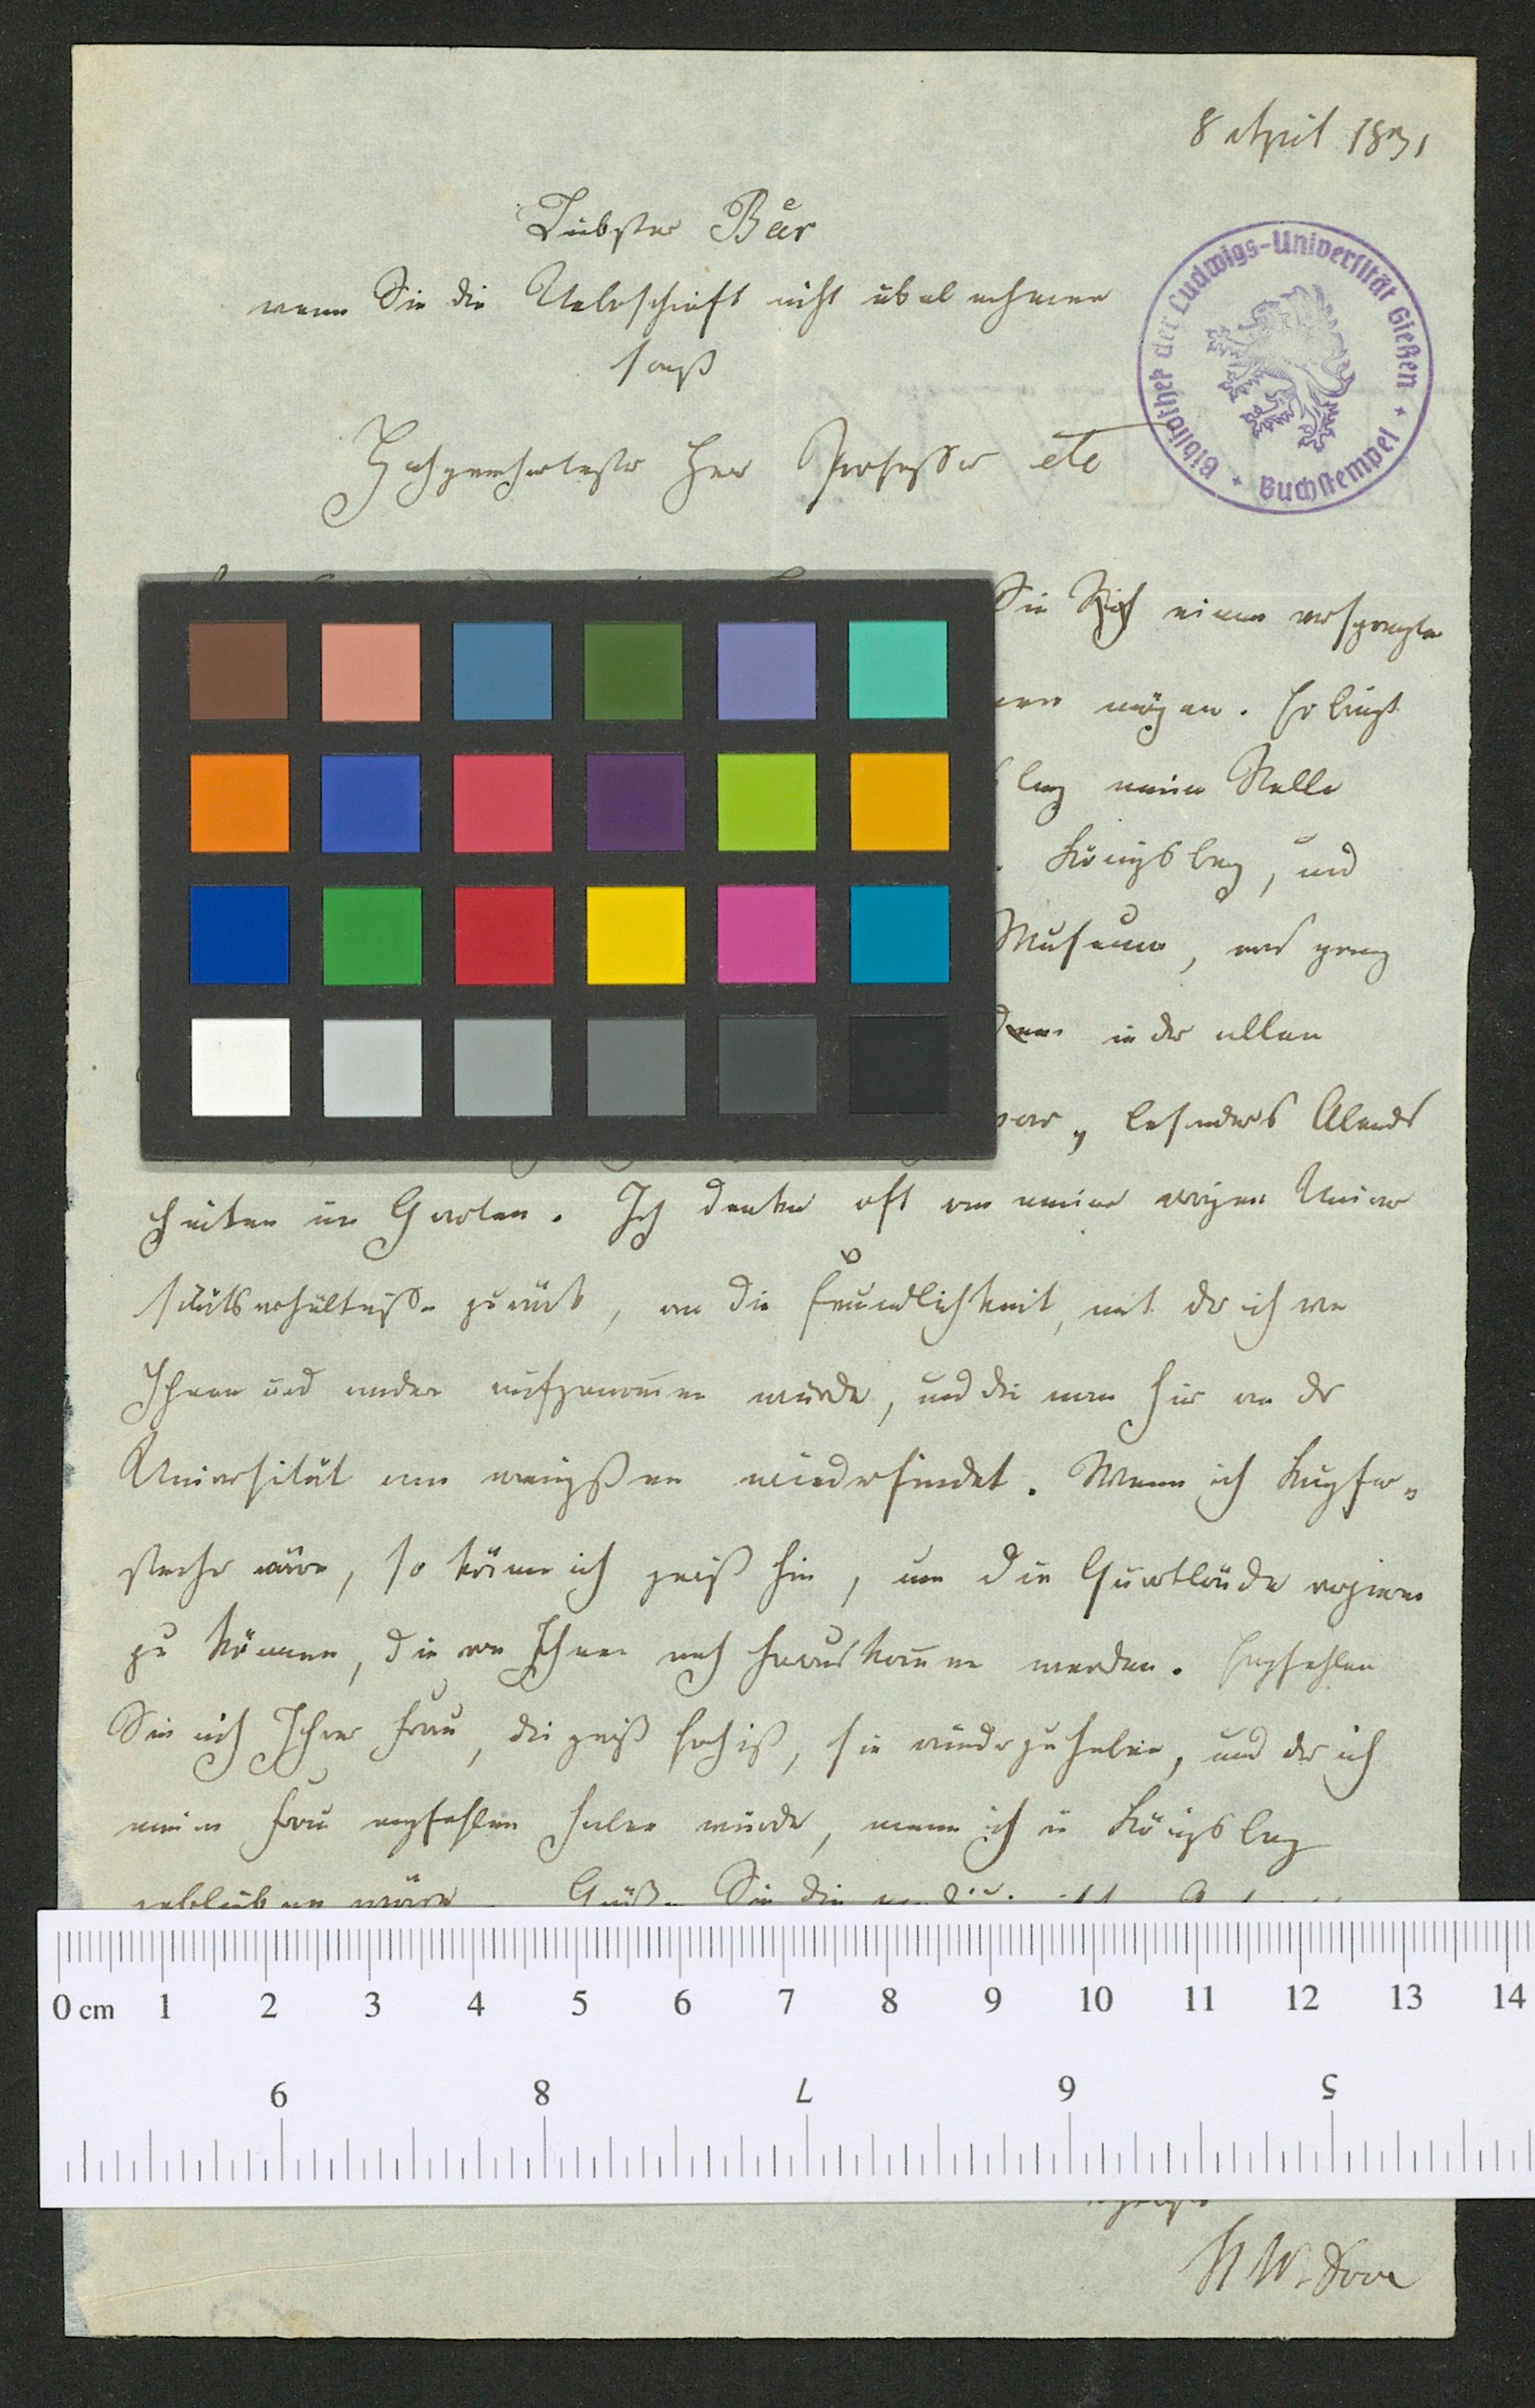 8 April 1831
Liebster Bär
wenn Sie die Ueberschrift nicht übel nehmen
sonst
Hochgeehrtester Herr Professor etc
Bibliothek der Ludwigs-Universität Gießen
Buchstempel
Sie Sich eines versprengten
mögen. Er liest
berg meine Stelle
Königsberg, und
Museum, was ganz
in der alten
war, besonders Abends
im Garten. Ich denke oft an meine vorigen Univer
sitätsverhältnisse zurück, an die Freundlichkeit, mit der ich von
Ihnen und andern aufgenommen wurde, und die man hier an der
Universität am wenigsten wiederfindet. Wenn ich Kupfer-
stecher wäre, so käme ich gewiß hin, um die Quartbände
zu können, die von Ihnen noch herauskommen werden. Empfehlen
Sie mich Ihrer Frau, die gewiß froh ist, Sie wieder zu haben, und der ich
meine Frau empfehlen haben würde, wenn ich in Königsberg
geblieben wäre. Grüßen Sie die
0 cm 1 2 3 4 5 6 7 8 9 10 11 12 13 14
9 8 7 6 5
H W. Dove